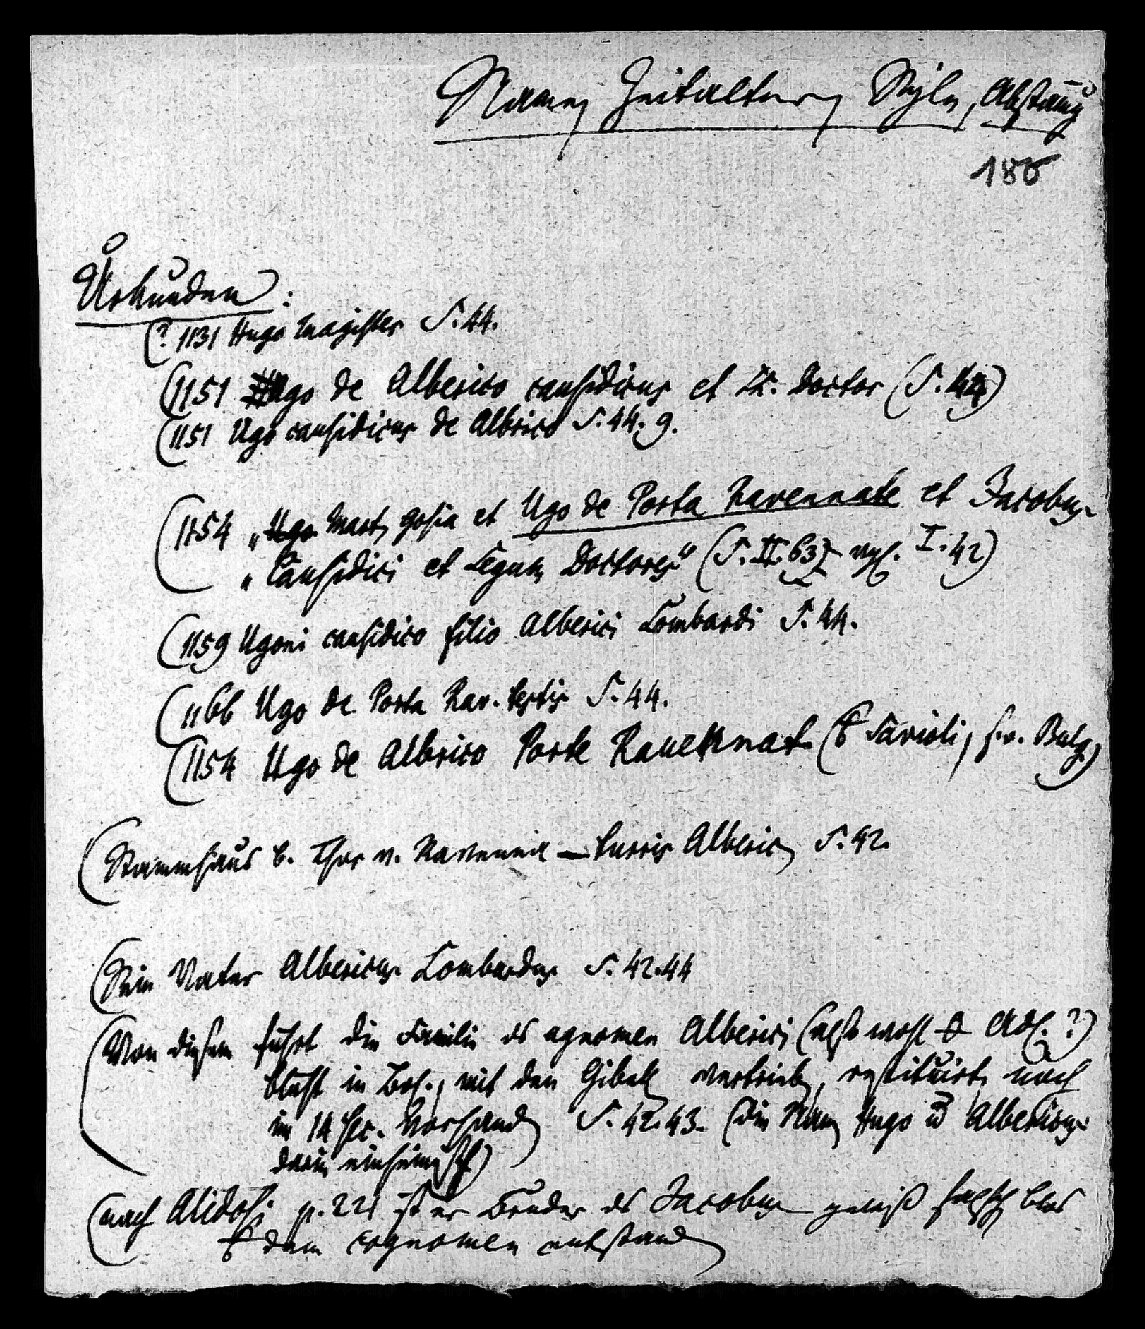 Namen, Zeitalter, Style, Abstamg
186
Urkunden:
(? 1131 Hugo magister S. 44.
(1151 Ugo de Alberico causidicus et LL. Doctor (S. 44)
(1151 Ugo causidicus de Albrico S. 44. 9.
(1154 „Ugo Mart. gosia et Ugo de Porta Ravennate et Jacobus
„Causidici et Legum Doctores" (S. II. 63) vgl. I. 42)
(1159 Ugoni causidico filio Alberici Lombardi S. 44.
(1166 Ugo de Porta Rav. testis S. 44.
(1154 Ugo de Albrico Porte Ravennat. Savioli, s. v. Bulg.)
(Stammhaus b. Thor v. Ravenna — turris Alberici S. 42.
(Sein Vater Albericus Lombardus S. 42.44
(Von diesem führt die Familie ds agnomen Alberici (also wohl
blüht in Bol., mit den Gibell. vertrieben, restituirt, noch
im 14 Sec. vorhanden S. 42.43. (die Namen Hugo u Albericus
darin einheimisch)
(nach Alidosi p. 221 ist er Bruder ds Jacobus gewiß falsch blos
dem cognomen entstanden